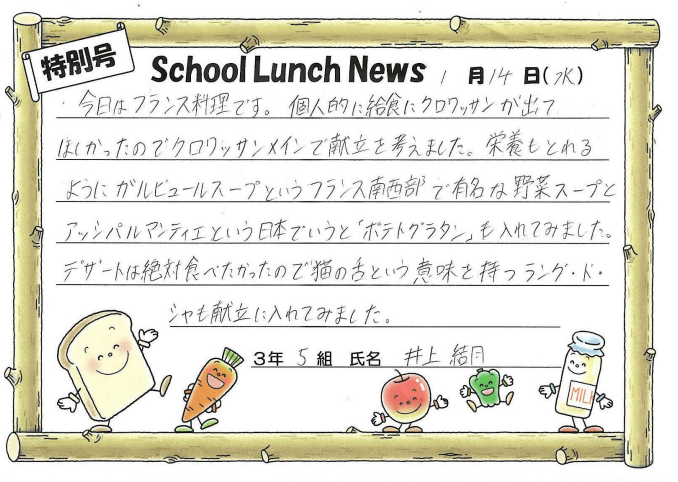 特別号
School Lunch News 1月14日(水)
今日はフランス料理です。個人的に給食にクロワッサンが出て
ほしかったのでクロワッサンメインで献立を考えました。栄養もとれる
ようにガルビュールスープというフランス南西部で有名な野菜スープと
アッシパルマンティエという日本でいうと「ポテトグラタン」も入れてみました。
デザートは絶対食べたかったので猫の舌という意味を持つラング・ド・
シャも献立に入れてみました。
3年 5組 氏名 井上 結月
MILK